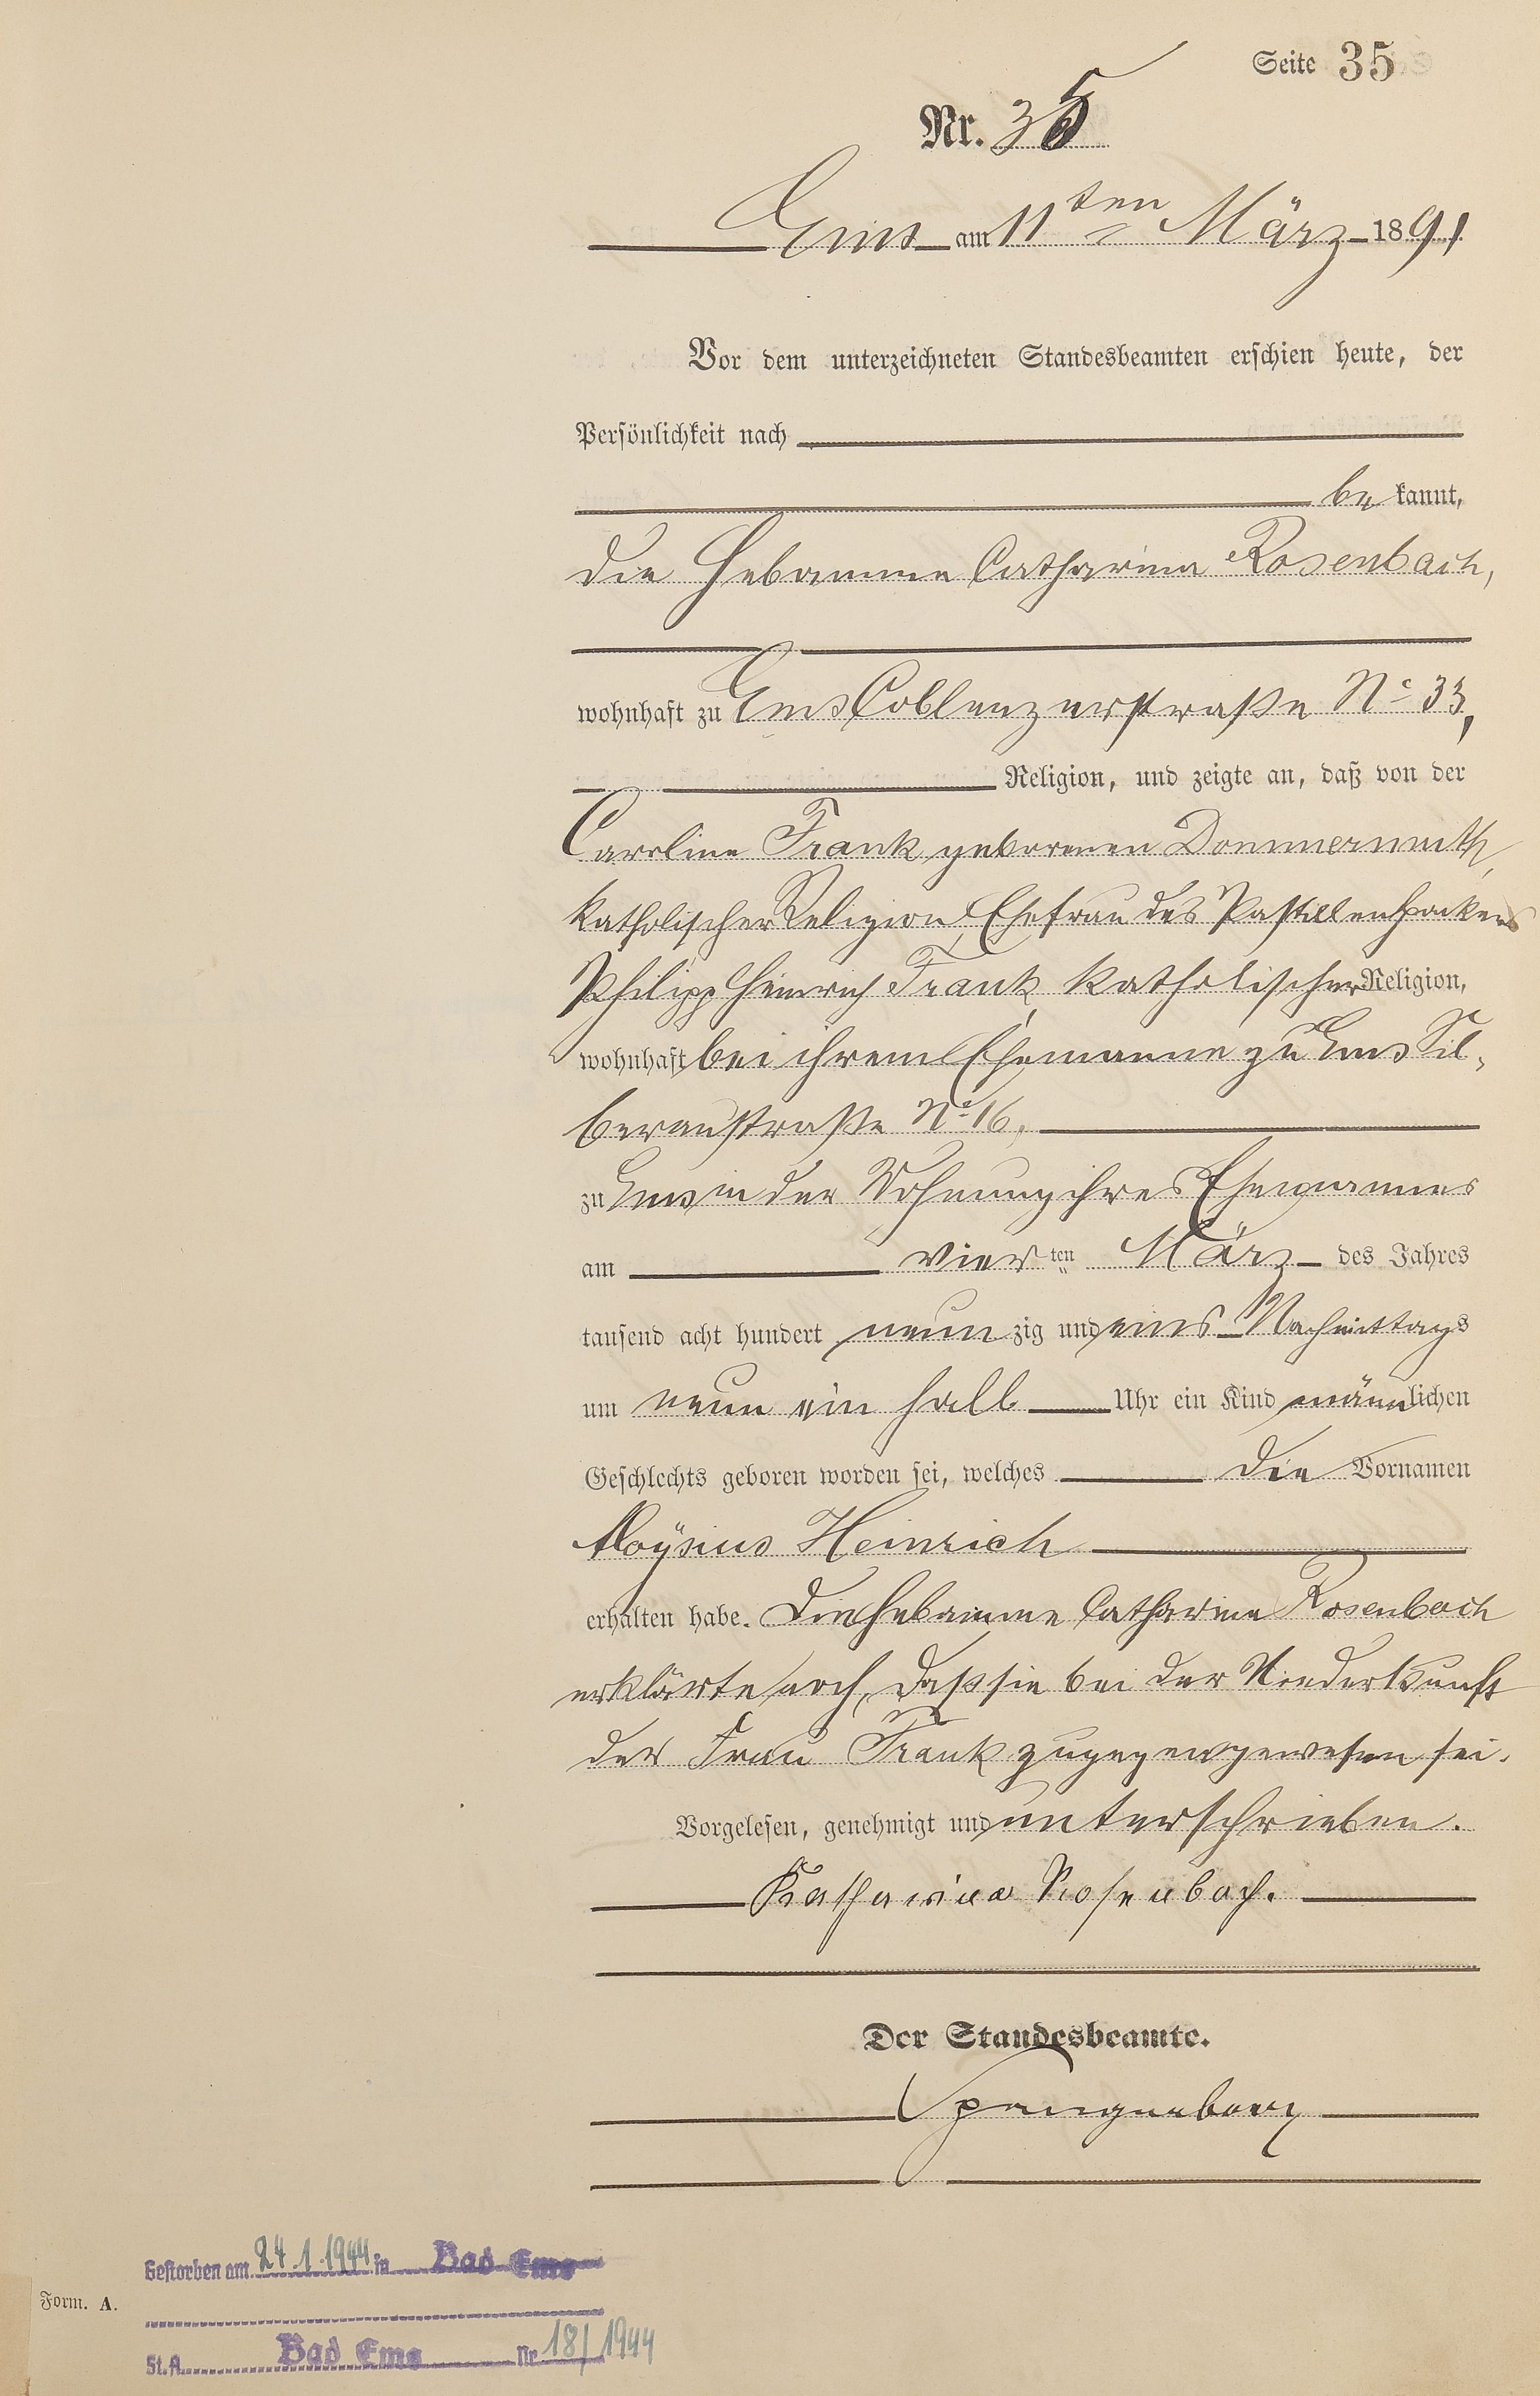 Seite 35
Nr. 35
Ems am 11ten März 1891
Vor dem unterzeichneten Standesbeamten erschien heute, der
Persönlichkeit nach
be kannt,
die Hebamme Catharina Rosenbach,
wohnhaft zu Ems Coblenzerstraße No 33,
Religion, und zeigte an, daß von der
Caroline Frank geborenen Dommermuth,
katholischer Religion, Ehefrau des Pastillenpackers
Philipp Heinrich Frank, katholischer Religion,
wohnhaft bei ihrem Ehemanne zu Ems Sil-
beraustraße No 16,
zu Ems in der Wohnung ihres Ehemannes
am vier ten März des Jahres
tausend acht hundert neun zig und eins Nachmittags
um neun ein halb Uhr ein Kind männlichen
Geschlechts geboren worden sei, welches die Vornamen
Aloÿsius Heinrich
erhalten habe. Die Hebamme Catharina Rosenbach
erklärte noch, daß sie bei der Niederkunft
der Frau Frank zugegen gewesen sei.
Vorgelesen, genehmigt und unterschrieben.
Katharina Rosenbach.
Der Standesbeamte.
Spangenberg
Gestorben am 24.1.1944 in Bad Ems
Form. A.
St.A. Bad Ems Nr. 18/1944